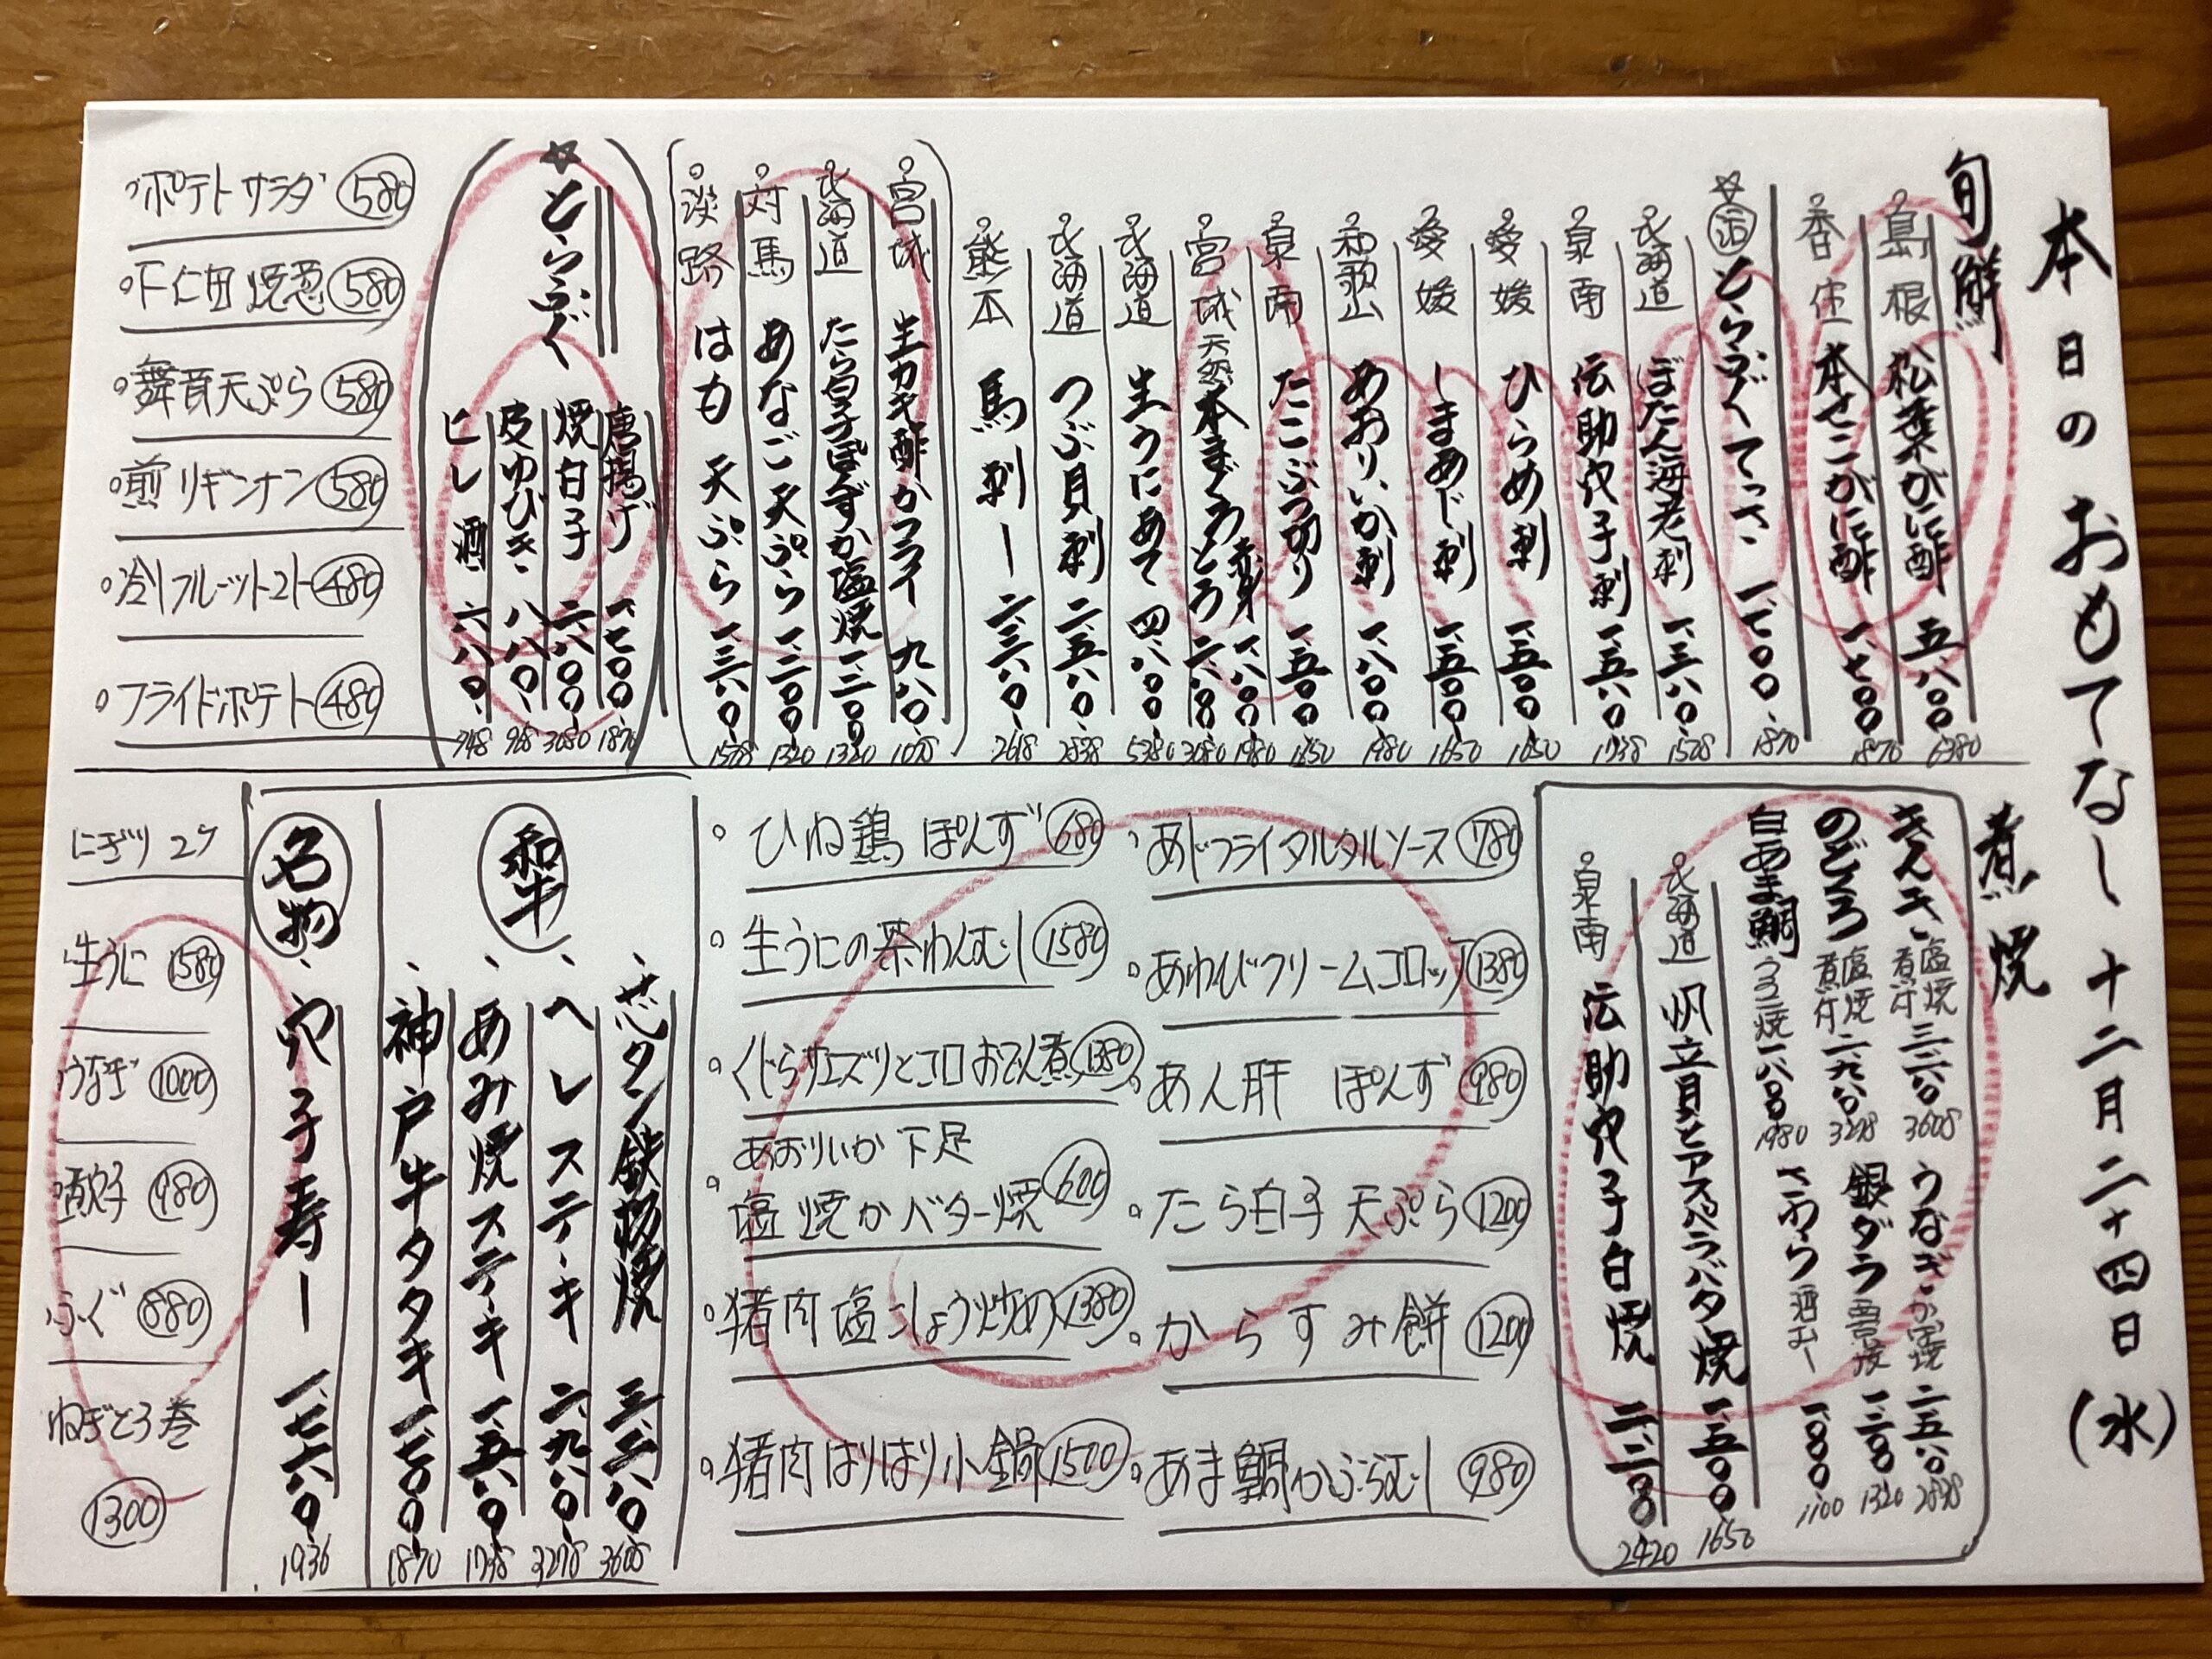 本日のおもてなし 十二月二十四日(水)
旬鮮
島根 松葉がに酢 五、八〇〇 6380
香住 本せこがに酢 一、七〇〇 1870
☆活とらふぐてっさ 一、七〇〇 1870
北海道 ぼたん海老刺 一、三八〇 1528
泉南 伝助穴子刺 一、五八〇 1738
愛媛 ひらめ刺 一、五〇〇 1650
愛媛 しまあじ刺 一、五〇〇 1650
和歌山 あおりいか刺 一、八〇〇 1980
泉南 たこぶつ切り 一、五〇〇 1650
宮城 天然本まぐろ 赤身 一、八〇〇 1980
とろ 二、八〇〇 3080
北海道 生うにあて 四、八〇〇 5280
北海道 つぶ貝刺 二、五八〇 2838
熊本 馬刺し 二、三八〇 2618
宮城 生カキ酢かフライ 九八〇 1078
北海道 たら白子ぽんずか塩焼 一、二〇〇 1320
対馬 あなご天ぷら 一、二〇〇 1320
淡路 はも天ぷら 一、三八〇 1518
☆とらふぐ
唐揚げ 一、七〇〇 1870
焼白子 二、八〇〇 3080
皮ゆびき 八八〇 968
ヒレ酒 六八〇 748
ポテトサラダ 580
下仁田焼葱 580
舞茸天ぷら 580
煎りギンナン 580
冷しフルーツトマト 480
フライドポテト 480
煮焼
きんき 塩焼 煮付 三、二八〇 3608
のどぐろ 塩焼 煮付 二、九八〇 3278
白あま鯛 うろこ焼 一、八〇〇 1980
うなぎ かば焼 二、五八〇 2838
銀ダラ 西京焼 一、二〇〇 1320
さわら 酒むし 一、〇〇〇 1100
北海道 帆立貝とアスパラバタ焼 一、五〇〇 1650
泉南 伝助穴子白焼 二、二〇〇 2420
あじフライタルタルソース 780
あわびクリームコロッケ 1380
あん肝 ぽんず 980
たら白子天ぷら 1200
からすみ餅 1200
あま鯛かぶらむし 980
ひね鶏ぽんず 680
生うにの茶わんむし 1580
くじらサエズリとコロおでん煮 1380
あおりいか下足
塩焼かバター焼 600
猪肉塩こしょう炒め 1380
猪肉はりはり小鍋 1500
和牛
芯タン鉄板焼 三、二八〇 3608
ヘレステーキ 二、九八〇 3278
あみ焼ステーキ 一、五八〇 1738
神戸牛タタキ 一、七〇〇 1870
名物
穴子寿し 一、七六〇 1936
にぎり2ケ
生うに 1580
うなぎ 1000
ふぐ 880
ねぎとろ巻
1300